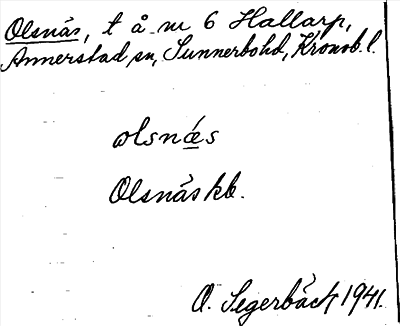 Olsnäs, t å nr 6 Hallarp,
Annerstad sn, Sunnerbo hd, Kronob. l.
olsnæs
Olsnäs kb.
O. Segerbäck 1941.